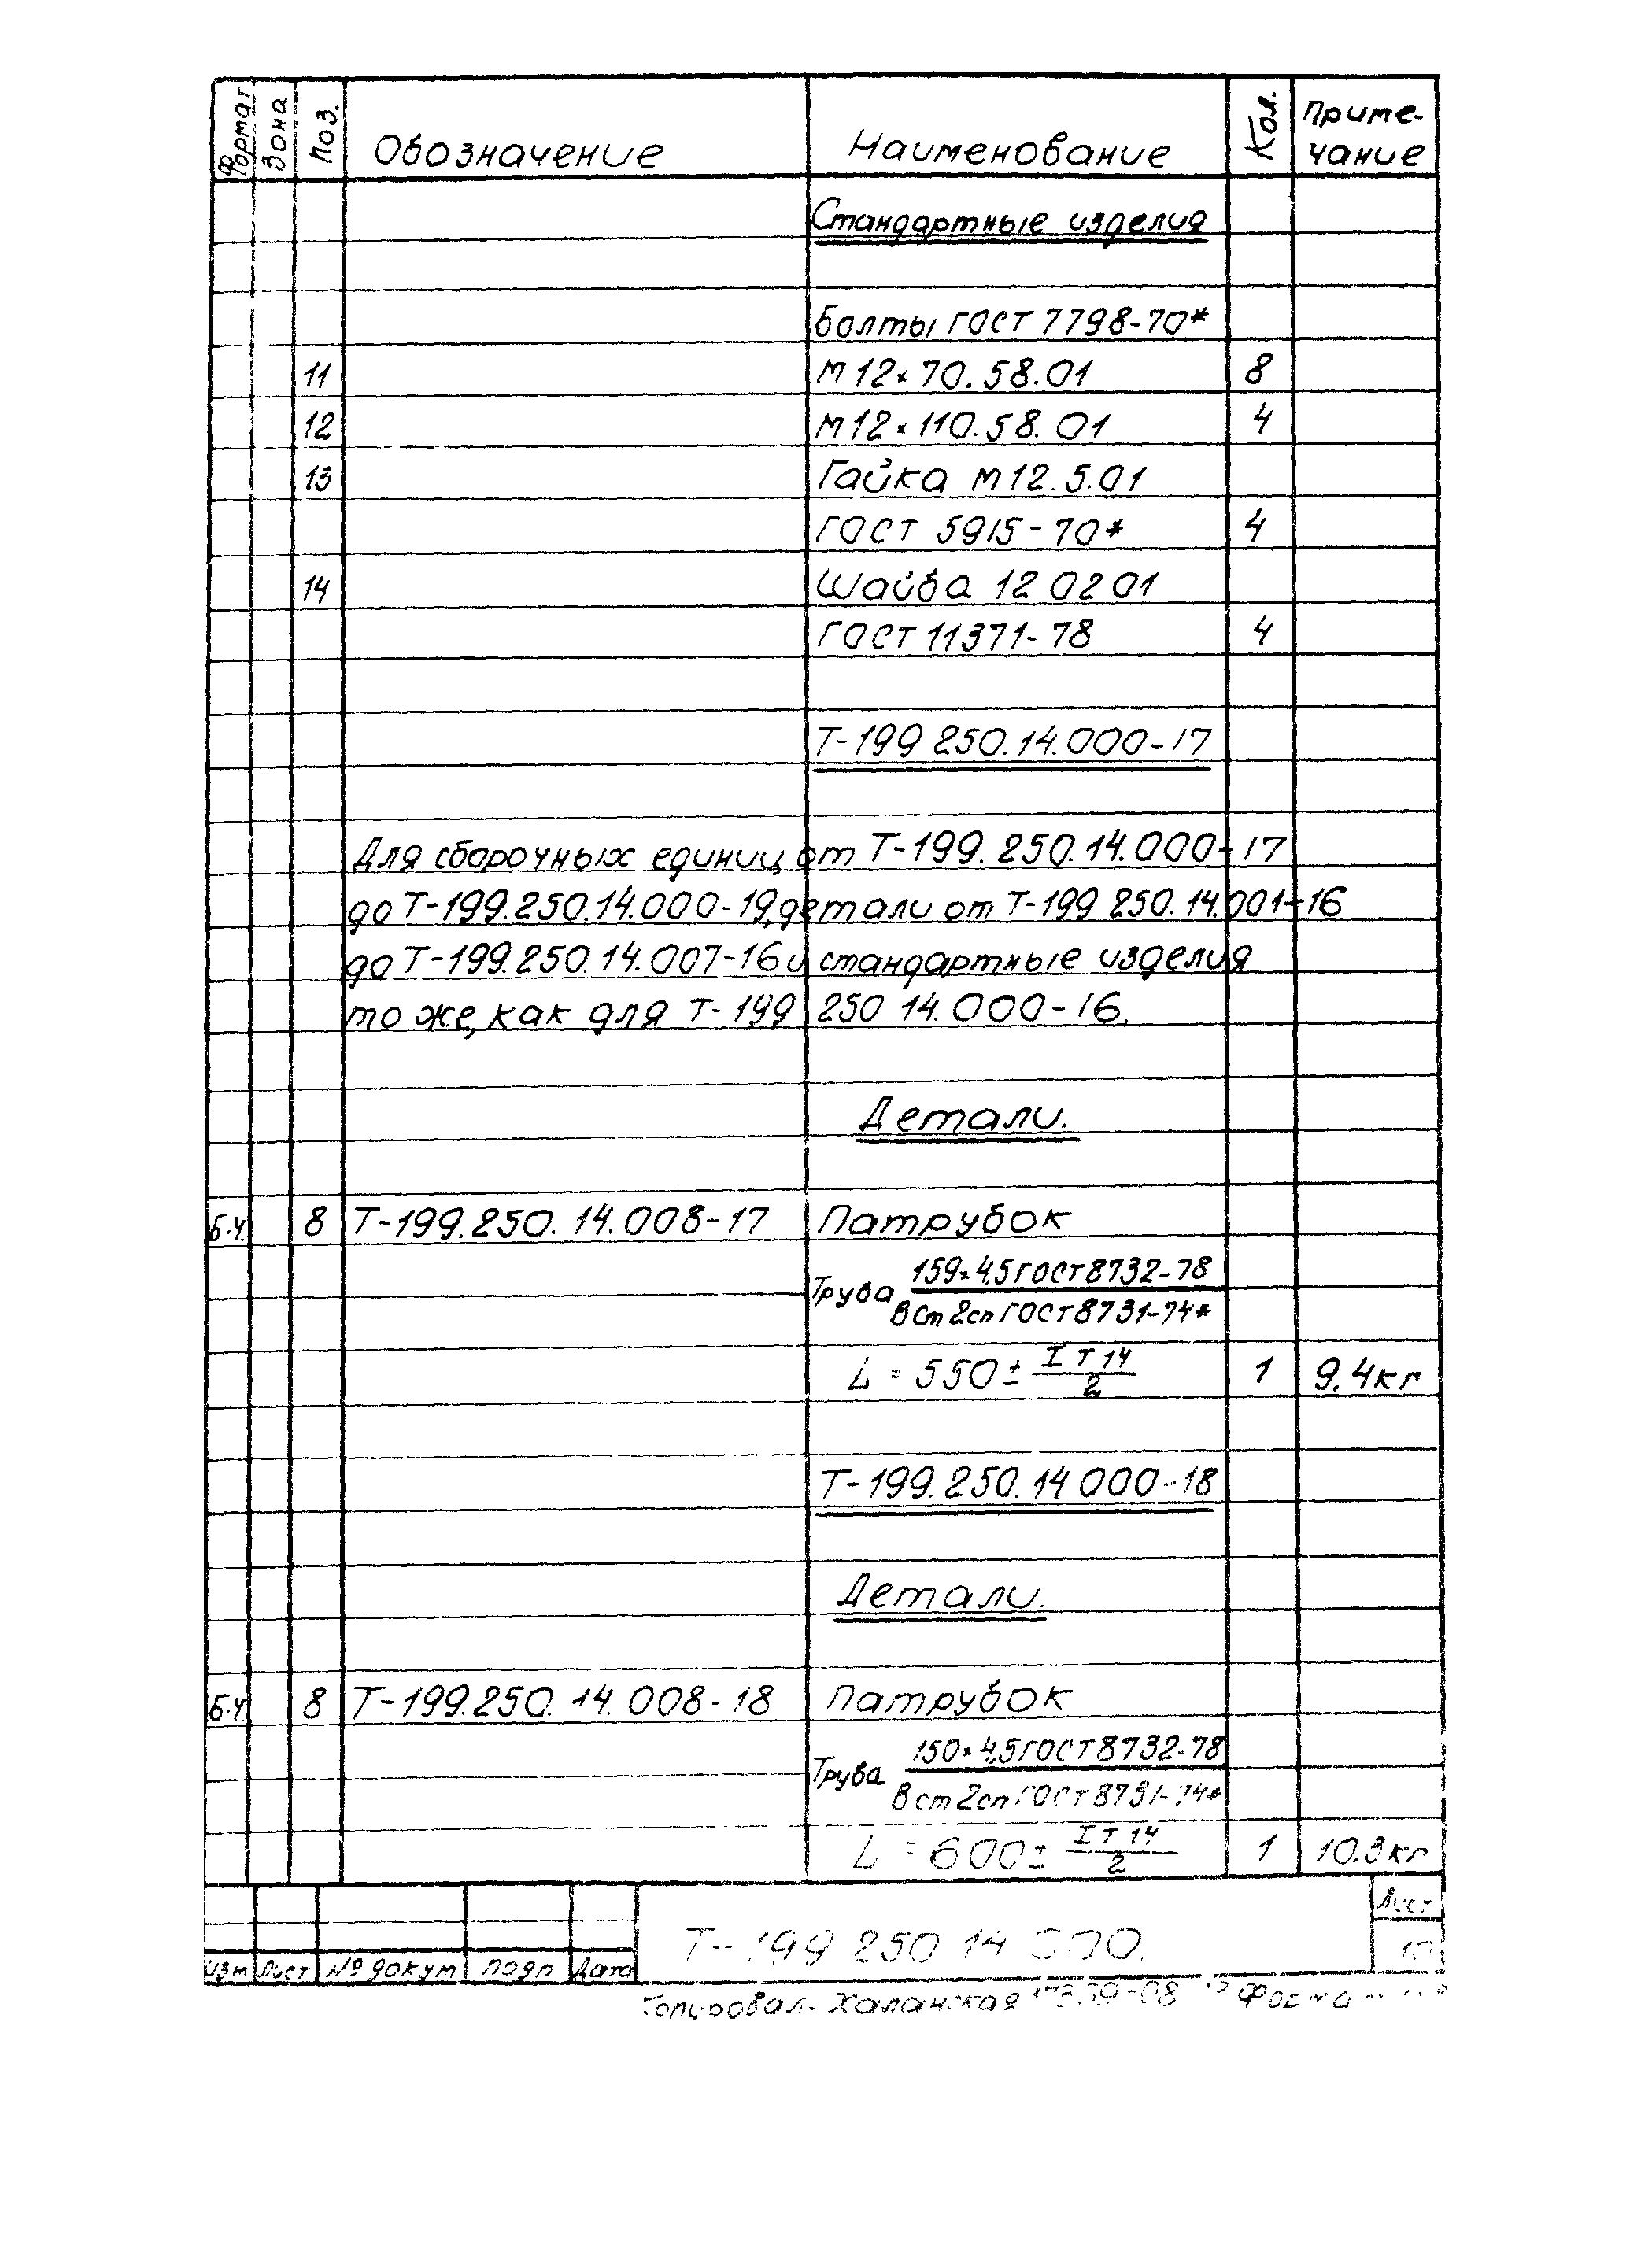 Формат Зона Поз. Обозначение Наименование Кол. Приме-
чание
Стандартные изделия
Болты ГОСТ 7798-70*
11 М12×70.58.01 8
12 М12×110.58.01 4
13 Гайка М12.5.01
ГОСТ 5915-70* 4
14 Шайба 12 02 01
ГОСТ 11371-78 4
Т-199 250.14.000-17
Для сборочных единиц от Т-199.250.14.000-17
до Т-199.250.14.000-19, детали от Т-199 250.14.001-16
до Т-199.250.14.007-16 и стандартные изделия
то же, как для Т-199 250 14.000-16.
Детали.
Б.Ч. 8 Т-199.250.14.008-17 Патрубок
Труба 159×4,5 ГОСТ 8732-78
В Ст 2сп ГОСТ 8731-74*
L = 550 ± IT14/2 1 9.4кг
Т-199.250.14 000-18
Детали.
Б.Ч. 8 Т-199.250.14.008-18 Патрубок
Труба 150×4,5 ГОСТ 8732-78
В ст 2сп ГОСТ 8731-74*
L = 600 ± IT14/2 1 10.3кг
Т-199 250 14 000. Лист
10
Изм Лист № докум подп Дата
Копировал. Халанская Формат